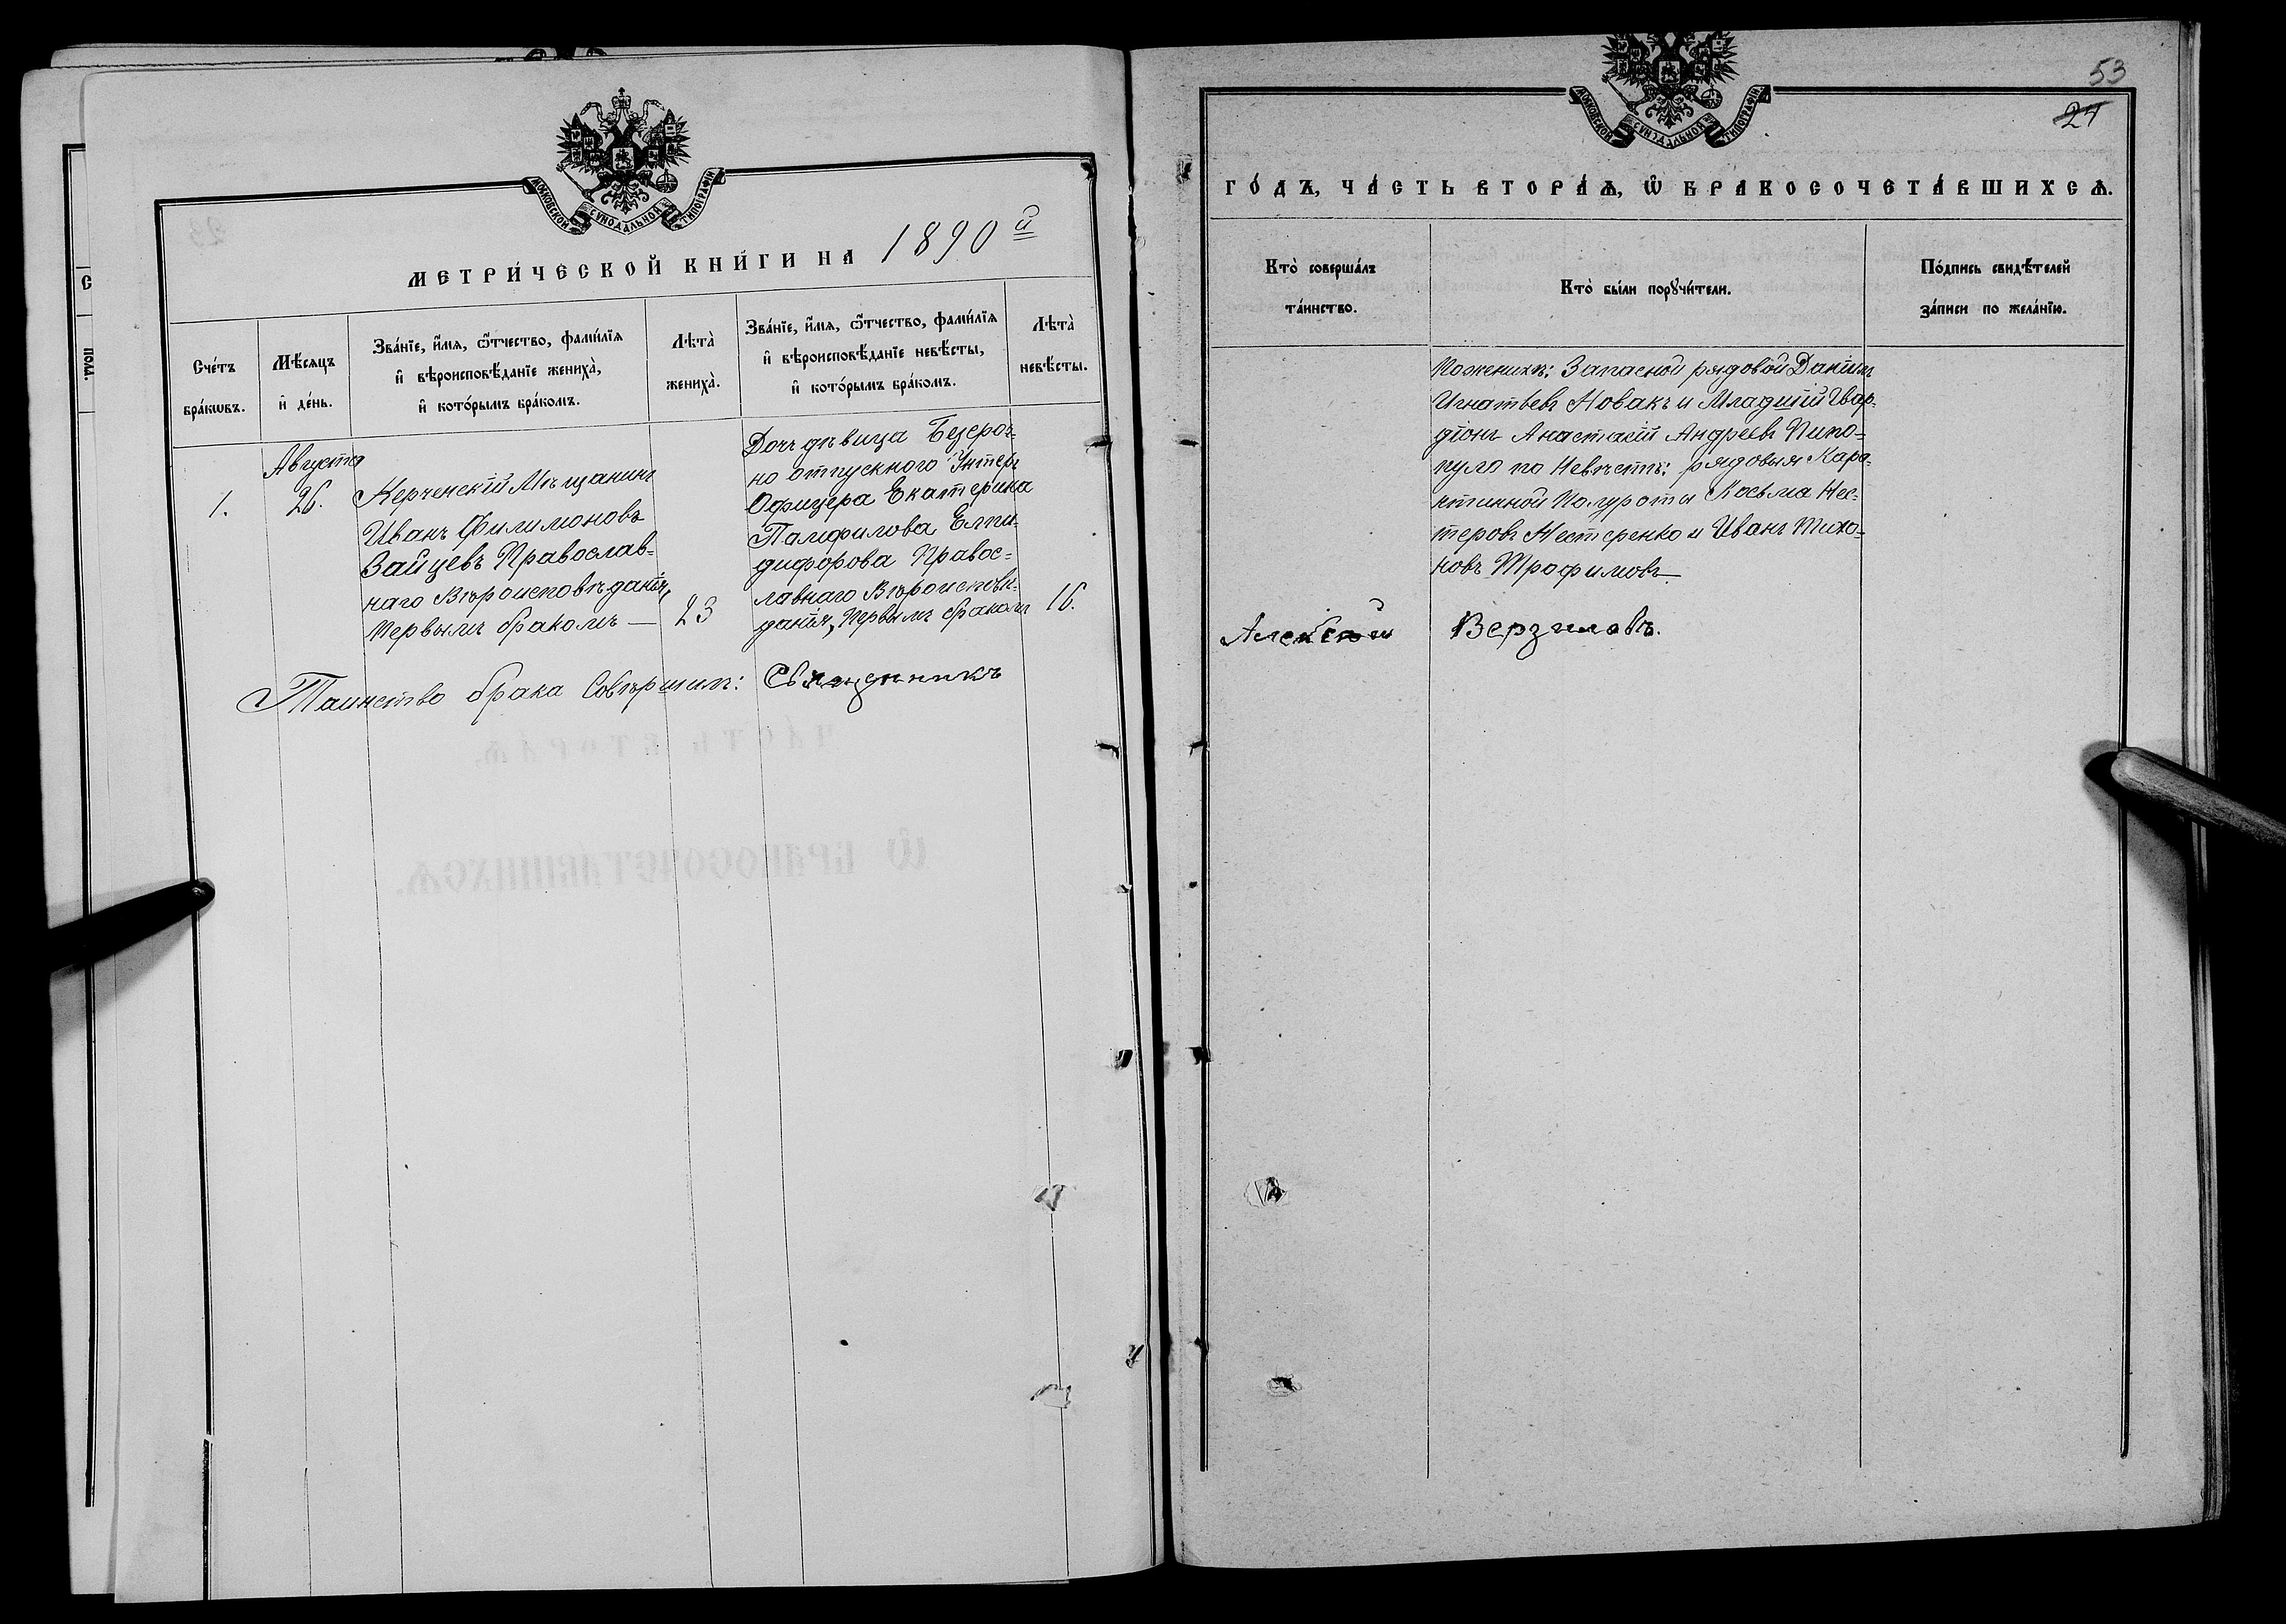 МОСКОВСКОЙ СѴНОДАЛЬНОЙ ТИПОГРАФІИ
МЕТРИ́ЧЕСКОЙ КНИ́ГИ НА 1890й
Сче́тъ бра́кѡвъ.
Мѣ́сяцъ и҆ де́нь.
Зва́нїе, и҆́мя, ѻ҆́тчество, фами́лїя
и҆ вѣроисповѣ́данїе жениха̀,
и҆ кото́рымъ бра́комъ.
Лѣта̀ жениха̀.
Зва́нїе, и҆́мя, ѻ҆́тчество, фами́лїя
и҆ вѣроисповѣ́данїе невѣ́сты,
и҆ кото́рымъ бра́комъ.
Лѣта̀ невѣ́сты.
1.
Августа
26.
Керченскій Мѣщанинъ
Иванъ Филимоновъ
Зайцевъ Православ-
наго Вѣроисповѣданія,
Первымъ бракомъ —
23
Дочь дѣвица Безсроч-
но отпускного Унтеръ
Офицера Екатерина
Памфилова Елпи-
дифорова Правос-
лавнаго Вѣроисповѣ-
данія, Первымъ бракомъ
16.
Таинство брака Совѣршилъ: Священникъ
53
24
МОСКОВСКОЙ СѴНОДАЛЬНОЙ ТИПОГРАФІИ
ГО́ДЪ, ЧА́СТЬ ВТОРА́Ѧ, Ѡ҆ БРАКОСОЧЕТА́ВШИХСѦ.
Кто̀ соверша́лъ
та́инство.
Кто̀ бы́ли порꙋчи́тели.
По́дпись свидѣ́телей
за́писи по жела́нїю.
По женихѣ: Запасной рядовой Данiилъ
Игнатьевъ Новакъ и Младшій Гвар-
діонъ Анастасій Андреевъ Пипо-
пуло по Невѣстѣ: рядовыя Кара-
нтинной Полуроты Косьма Нес-
теровъ Нестеренко и Иванъ Тихо-
новъ Трофимовъ
Алексѣй Верзиловъ.